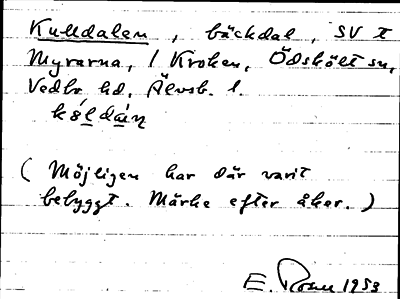 Kulldalen, bäckdal, SV t
Myrarna, 1 Kroken, Ödskölt sn,
Vedbo hd, Älvsb. l.
( Möjligen har där varit
bebyggt. Märke efter åker. )
E. 1953